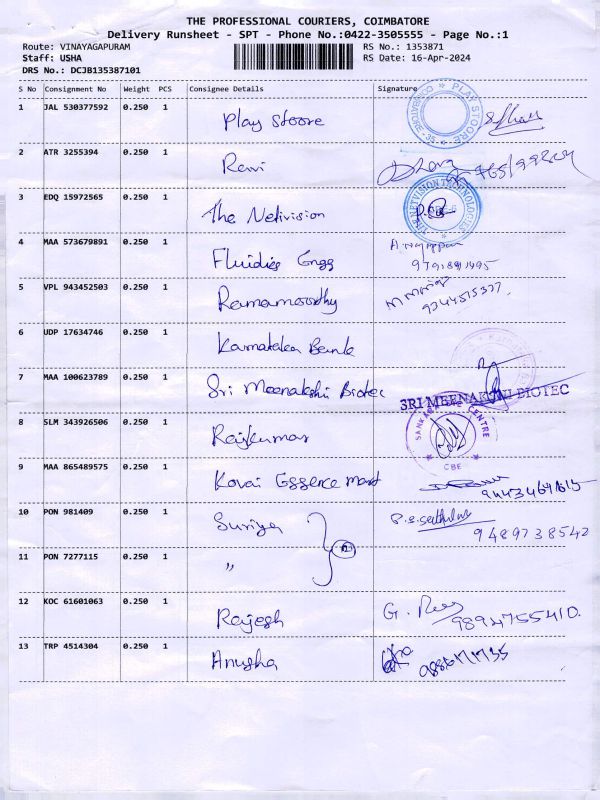 THE PROFESSIONAL COURIERS, COIMBATORE
Delivery Runsheet - SPT - Phone No.:0422-3505555 - Page No.:1
Route: VINAYAGAPURAM RS No.: 1353871
Staff: USHA RS Date: 16-Apr-2024
DRS No.: DCJB135387101
S No Consignment No Weight PCS Consignee Details Signature
1 JAL 530377592 0.250 1 Play Stoore
PLAY STOORE
2 ATR 3255394 0.250 1 Ravi
3 EDQ 15972565 0.250 1 The Netivision
4 MAA 573679891 0.250 1 Fluidics Engg
5 VPL 943452503 0.250 1 Ramamoorthy
9344515377.
6 UDP 17634746 0.250 1 Karnataka Bank
7 MAA 100623789 0.250 1 Sri Meenakshi Biotec
SRI MEENAKSHI BIOTEC
8 SLM 343926506 0.250 1 Rajkumar
SANKARA EYE CENTRE
CBE
9 MAA 865489575 0.250 1 Kovai Essence mart
10 PON 981409 0.250 1 Suriya
9489738542
11 PON 7277115 0.250 1 "
12 KOC 61601063 0.250 1 Rajesh G.
9894755410.
13 TRP 4514304 0.250 1 Anusha